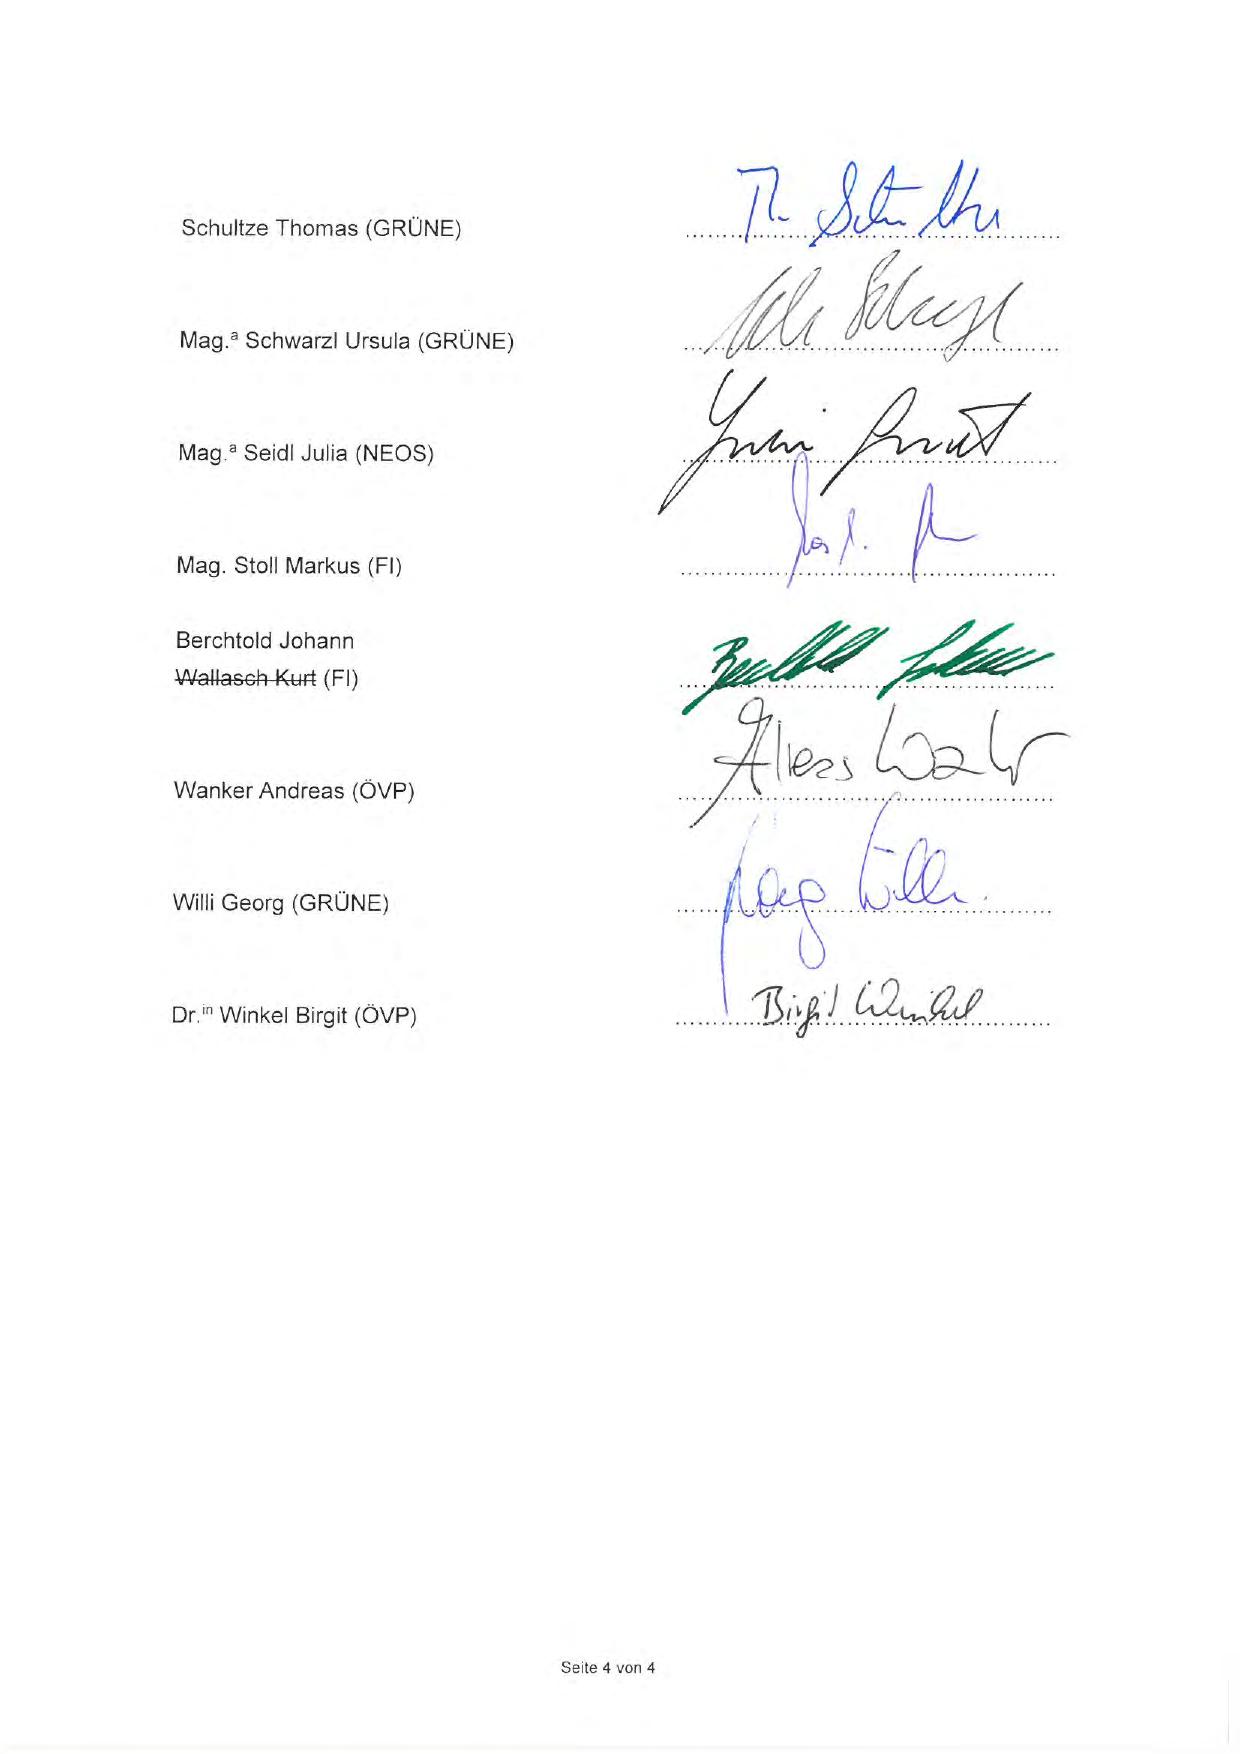 Schultze Thomas (GRÜNE)
Th. Schultze
Mag.ª Schwarzl Ursula (GRÜNE)
Mag.ª Seidl Julia (NEOS)
Mag. Stoll Markus (FI)
Berchtold Johann
Wallasch Kurt (FI)
Wanker Andreas (ÖVP)
Willi Georg (GRÜNE)
Georg Willi
Dr.ⁱⁿ Winkel Birgit (ÖVP)
Birgit Winkel
Seite 4 von 4